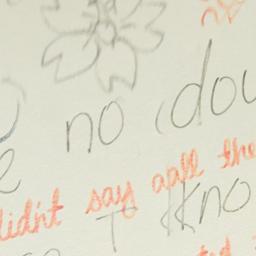 no dou
didn't say aall the
I kno